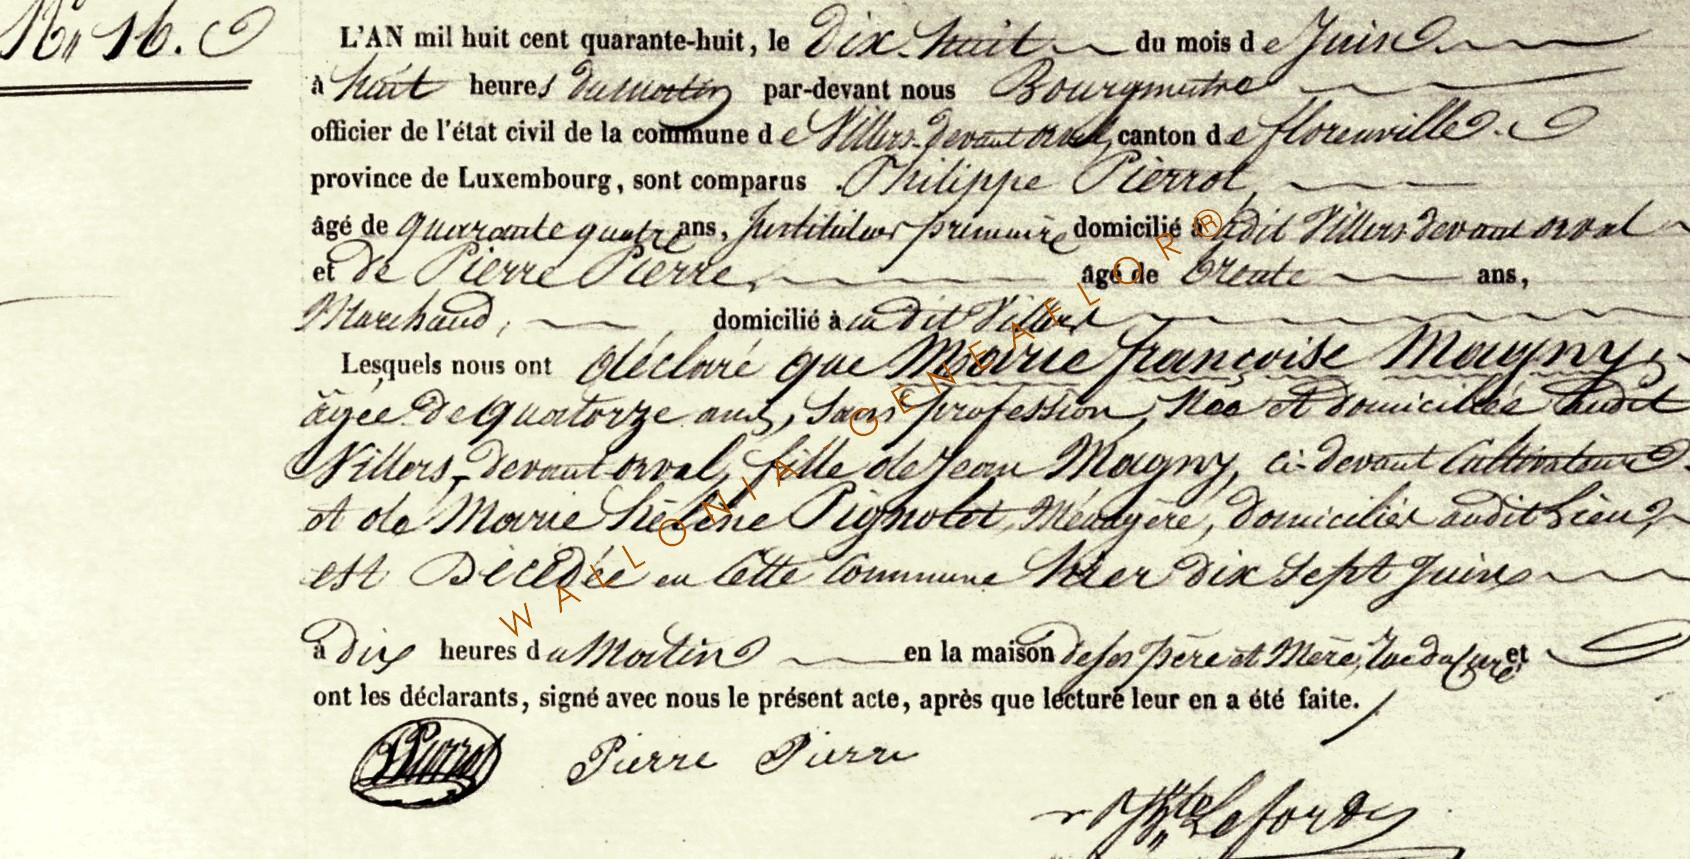 N° 16.
L'AN mil huit cent quarante-huit, le Dix-huit du mois de Juin
à huit heures du matin par-devant nous Bourgmestre
officier de l'état civil de la commune de Villers-devant orval, canton de florenville.
province de Luxembourg, sont comparus Philippe Pierrot,
âgé de quarante quatre ans, Instituteur primaire domicilié à udit Villers devant orval
et de Pierre Pierre, âgé de trente ans,
Marchand, domicilié à udit Villers
Lesquels nous ont déclaré que Marie françoise Magny,
âgée de quatorze ans, sans profession, Née et domiciliée audit
Villers-devant-orval, fille de Jean Magny, ci-devant Cultivateur
et de Marie hélène Pignolet, Ménagère, domiciliés audit Lieu,
est Décédée en Cette Commune hier dix sept Juin
à dix heures du Matin en la maison de ses père et Mère, et
ont les déclarants, signé avec nous le présent acte, après que lecture leur en a été faite.
PPierrot Pierre Pierre
WALLONIA-GENEAFLOR®